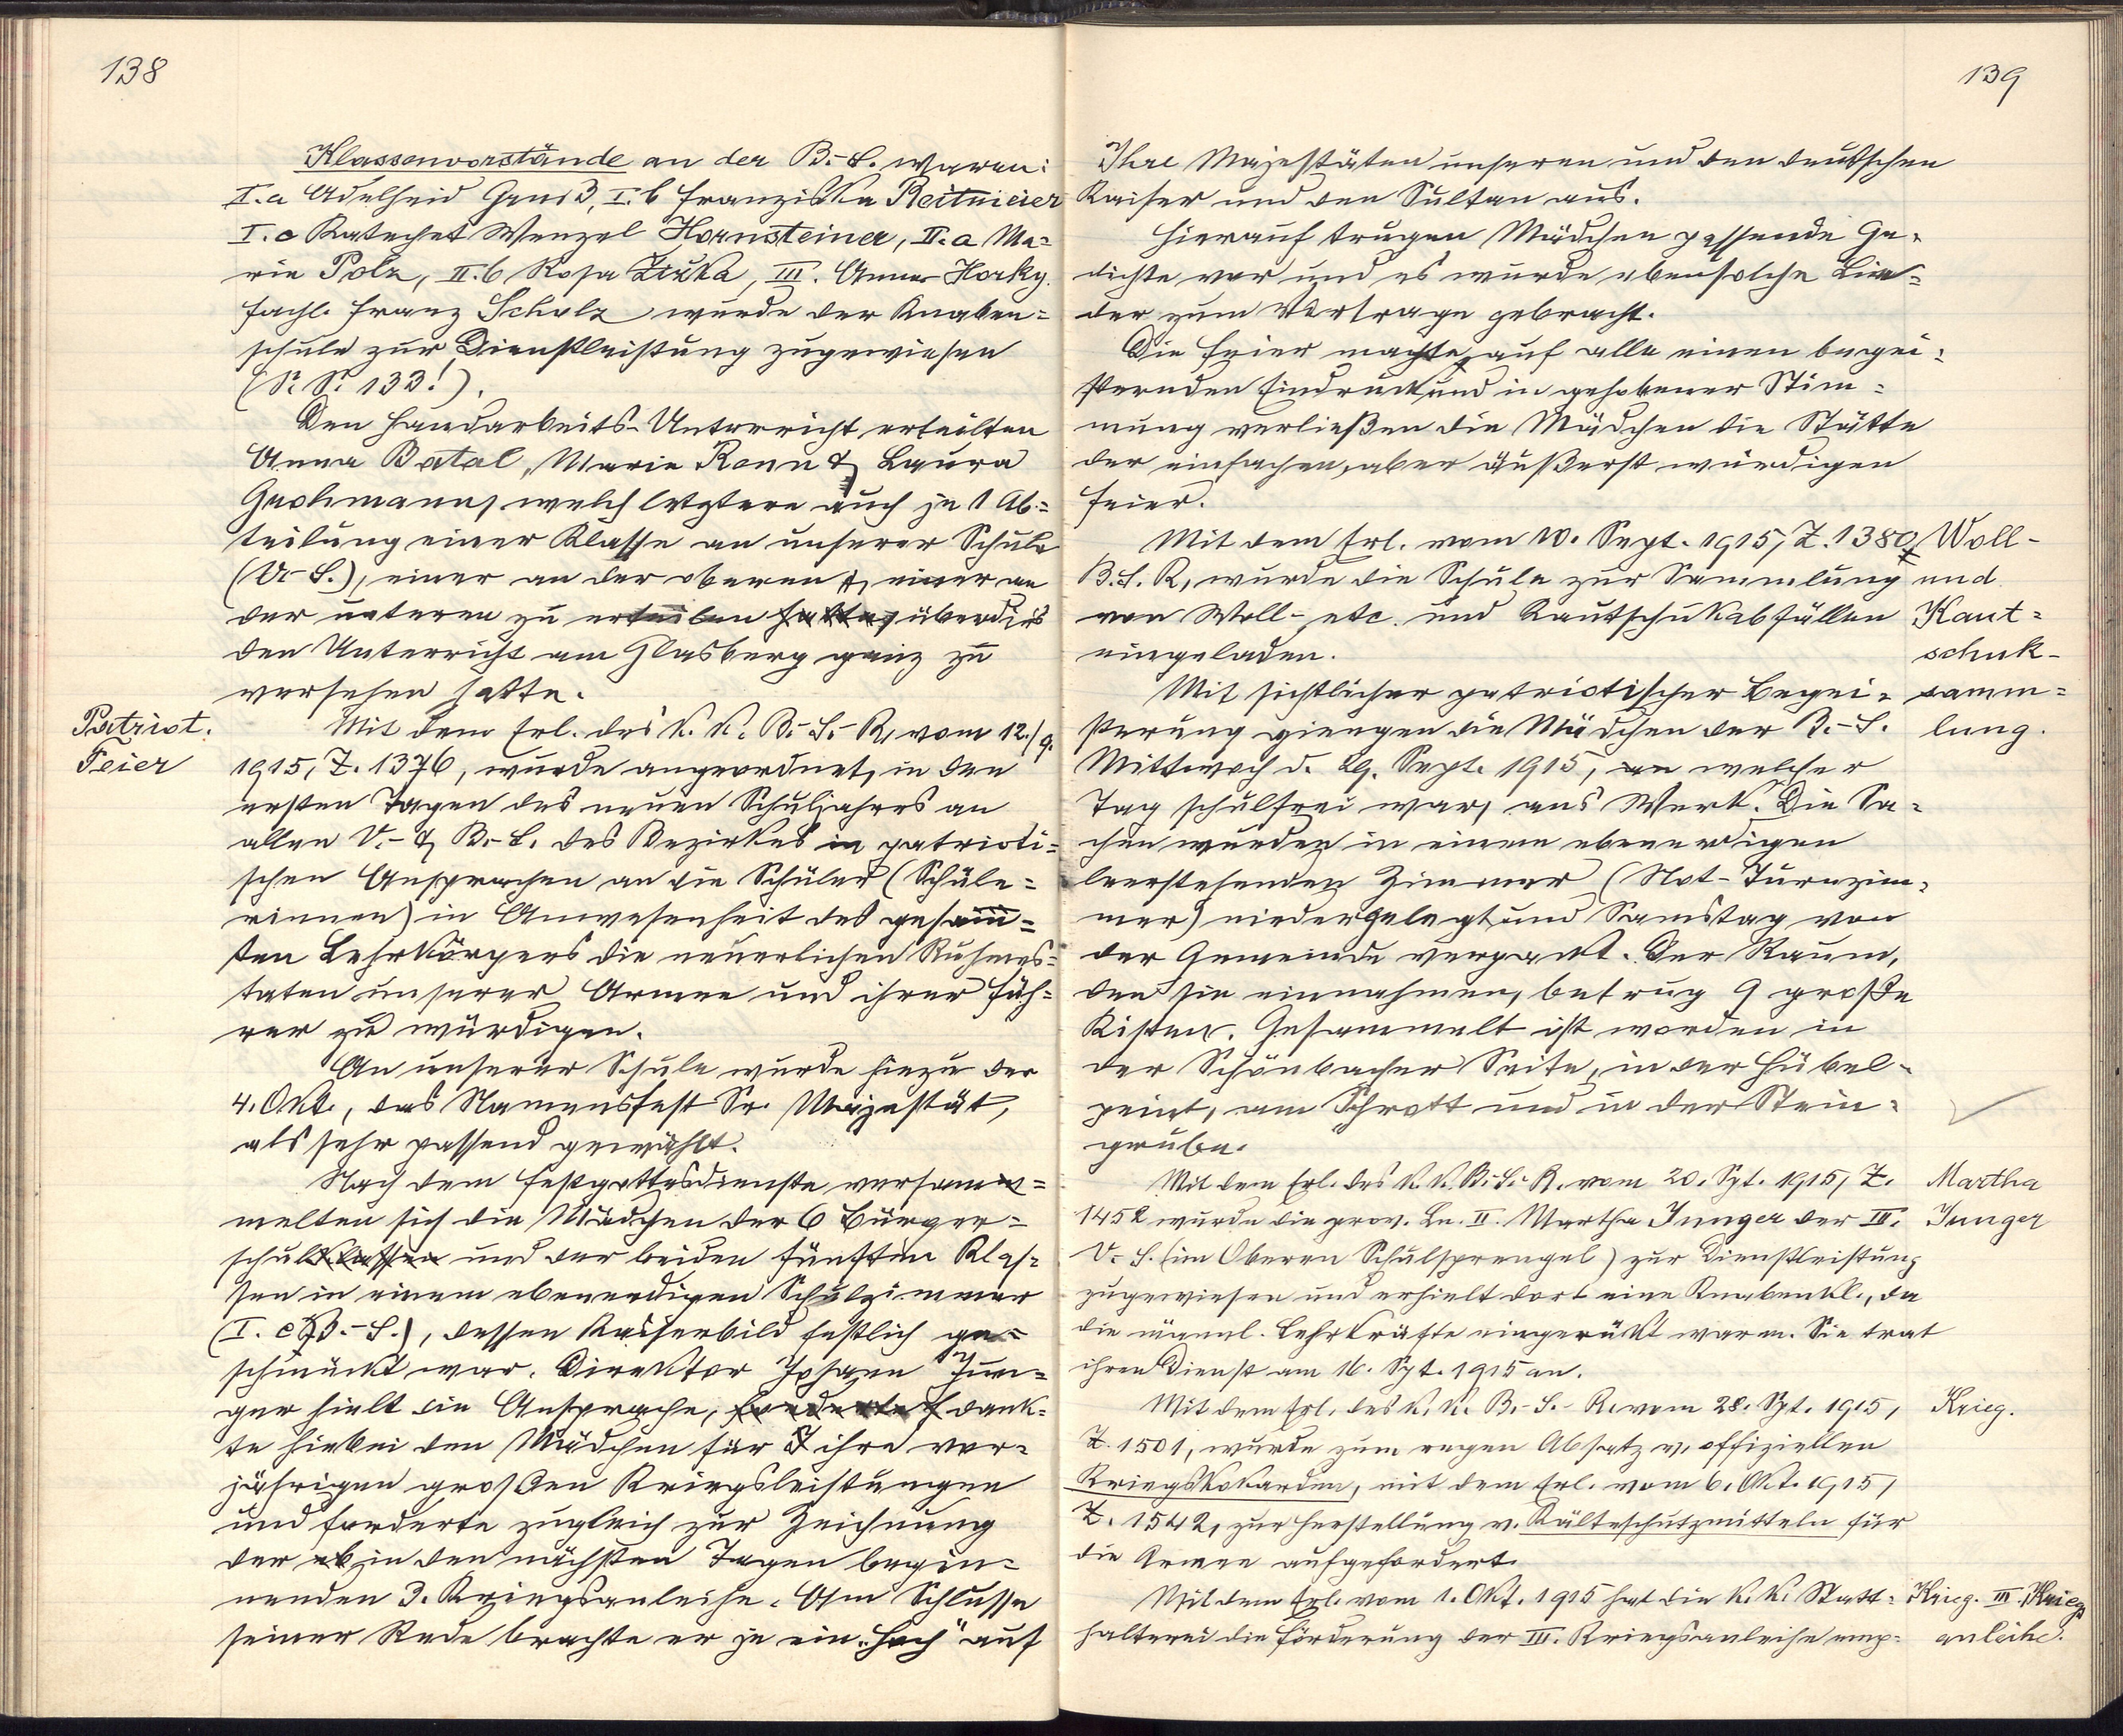 138
Klassenvorstände an der B.-S. waren:
I.a Adelheid Gruß, I.b Franziska Reitmeier
I.c Katechet Wenzel Hornsteiner, II.a Ma=
rie Polz, II.b Rosa Ziuka, III. Anna Horky.
Fachl. Franz Scholz wurde der Knaben=
schule zur Dienstleistung zugewiesen
(S. S. 133!).
Den Handarbeits-Unterricht erteilten
Anna Batal, Marie Ronn & Laura
Grohmann, welch letztere auch je 1 Ab=
teilung einer Klasse an unserer Schule
(V.-S.), einer an der oberen &, einer an
der unteren zu erteilen hatte, überdies
den Unterricht am Glasberg ganz zu
versehen hatte.
Patriot.
Feier
Mit dem Erl. des k. k. B.-S.-R. vom 12./9.
1915, Z. 1376, wurde angeordnet, in den
ersten Tagen des neuen Schuljahres an
allen V.- & B.-S. des Bezirkes in patrioti=
schen Ansprachen an die Schüler (Schüle=
rinnen) in Anwesenheit des gesam=
ten Lehrkörpers die neuerlichen Ruhmes=
taten unserer Armee und ihrer Füh=
rer zu würdigen.
An unserer Schule wurde hiezu der
4. Okt., das Namensfest Sr. Majestät,
als sehr passend gewählt.
Nach dem Festgottesdienste versam=
melten sich die Mädchen der 6 Bürger=
schulklassen und der beiden fünften Klas=
sen in einem ebenerdigen Schulzimmer
(I. c B.-S.), dessen Kaiserbild festlich ge=
schmückt war. Direktor Johann Jun=
ger hielt die Ansprache, forderte dank=
te hiebei den Mädchen für ihre vor=
jährigen großen Kriegsleistungen
und forderte zugleich zur Zeichnung
der ab in den nächsten Tagen begin=
nenden 3. Kriegsanleihe. Am Schlusse
seiner Rede brachte er je ein "Hoch" auf
139
Ihre Majestäten unseren und den deutschen
Kaiser und den Sultan aus.
Hierauf trugen Mädchen passende Ge=
dichte vor und es wurde ebensolche Lie=
der zum Vortrage gebracht.
Die Feier machte auf alle einen begei=
sternden Eindruck und in gehobener Stim=
mung verließen die Mädchen die Stätte
der einfachen, aber äußerst würdigen
Feier.
Mit dem Erl. vom 10. Sept. 1915, Z. 1380,
B. S. R., wurde die Schule zur Sammlung
von Woll-, etc. und Kautschukabfällen
eingeladen.
Woll-
und
Kaut=
schuk-
samm=
lung.
Mit sichtlicher patriotischer Begei=
sterung giengen die Mädchen der B.-S.
Mittwoch d. 29. Sept. 1915, an welcher
Tag schulfrei war, ans Werk. Die Sa=
chen wurden in einem ebenerdigen
leerstehenden Zimmer (Not-Turnzim=
mer) niedergelegt und Samstag von
der Gemeinde verpackt. Der Raum,
den sie einnahmen, betrug 9 große
Kisten. Gesammelt ist worden in
der Schönbacher Seite, in der Hübel-
peint, am Schrott und in der Stein=
grube.
Mit dem Erl. des k. k. B.-S.-R. vom 20. Spt. 1915, Z.
1452 wurde die prov. Ln. II. Martha Junger der III.
V.-S. (im Oberen Schulsprengel) zur Dienstleistung
zugewiesen und erhielt dort eine Knabenkl., da
die männl. Lehrkräfte eingerückt waren. Sie trat
ihren Dienst am 16. Spt. 1915 an.
Martha
Junger
Mit dem Erl. des k. k. B.-S.-R. vom 28. Spt. 1915,
Z. 1501, wurde zum regen Absatz v. offiziellen
Kriegskokarden, mit dem Erl. vom 6. Okt. 1915,
Z. 1542, zur Herstellung v. Kälteschutzmitteln für
die Armee aufgefordert.
Krieg.
Mit dem Erl. vom 1. Okt. 1915 hat die k. k. Statt=
halterei die Förderung der III. Kriegsanleihe emp=
Krieg. III. Kriegs
anleihe.